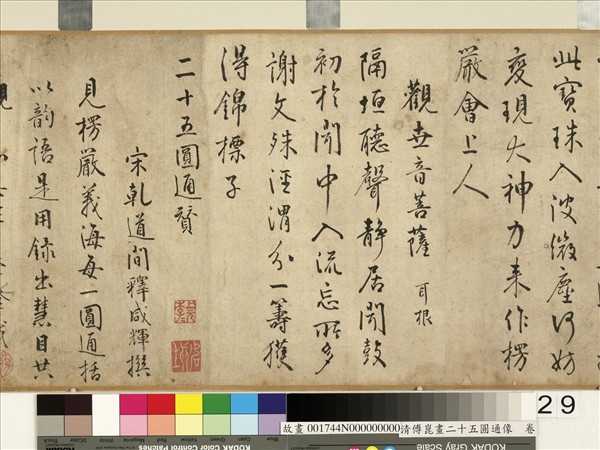 此寶珠入波微塵何妨
變現大神力来作楞
嚴會上人
觀世音菩薩 耳根
隔垣聽聲静居聞鼓
初於聞中入流忘所多
謝文殊涇渭分一籌獲
得錦標子
二十五圓通贊
宋乾道間釋咸輝撰
見楞嚴義海每一圓通括
以韵語是用録出慧目共
29
故畫 001744N000000000 清傅崑畫二十五圓通像 卷
KODAK Color Control Patches
KODAK Gray Scale